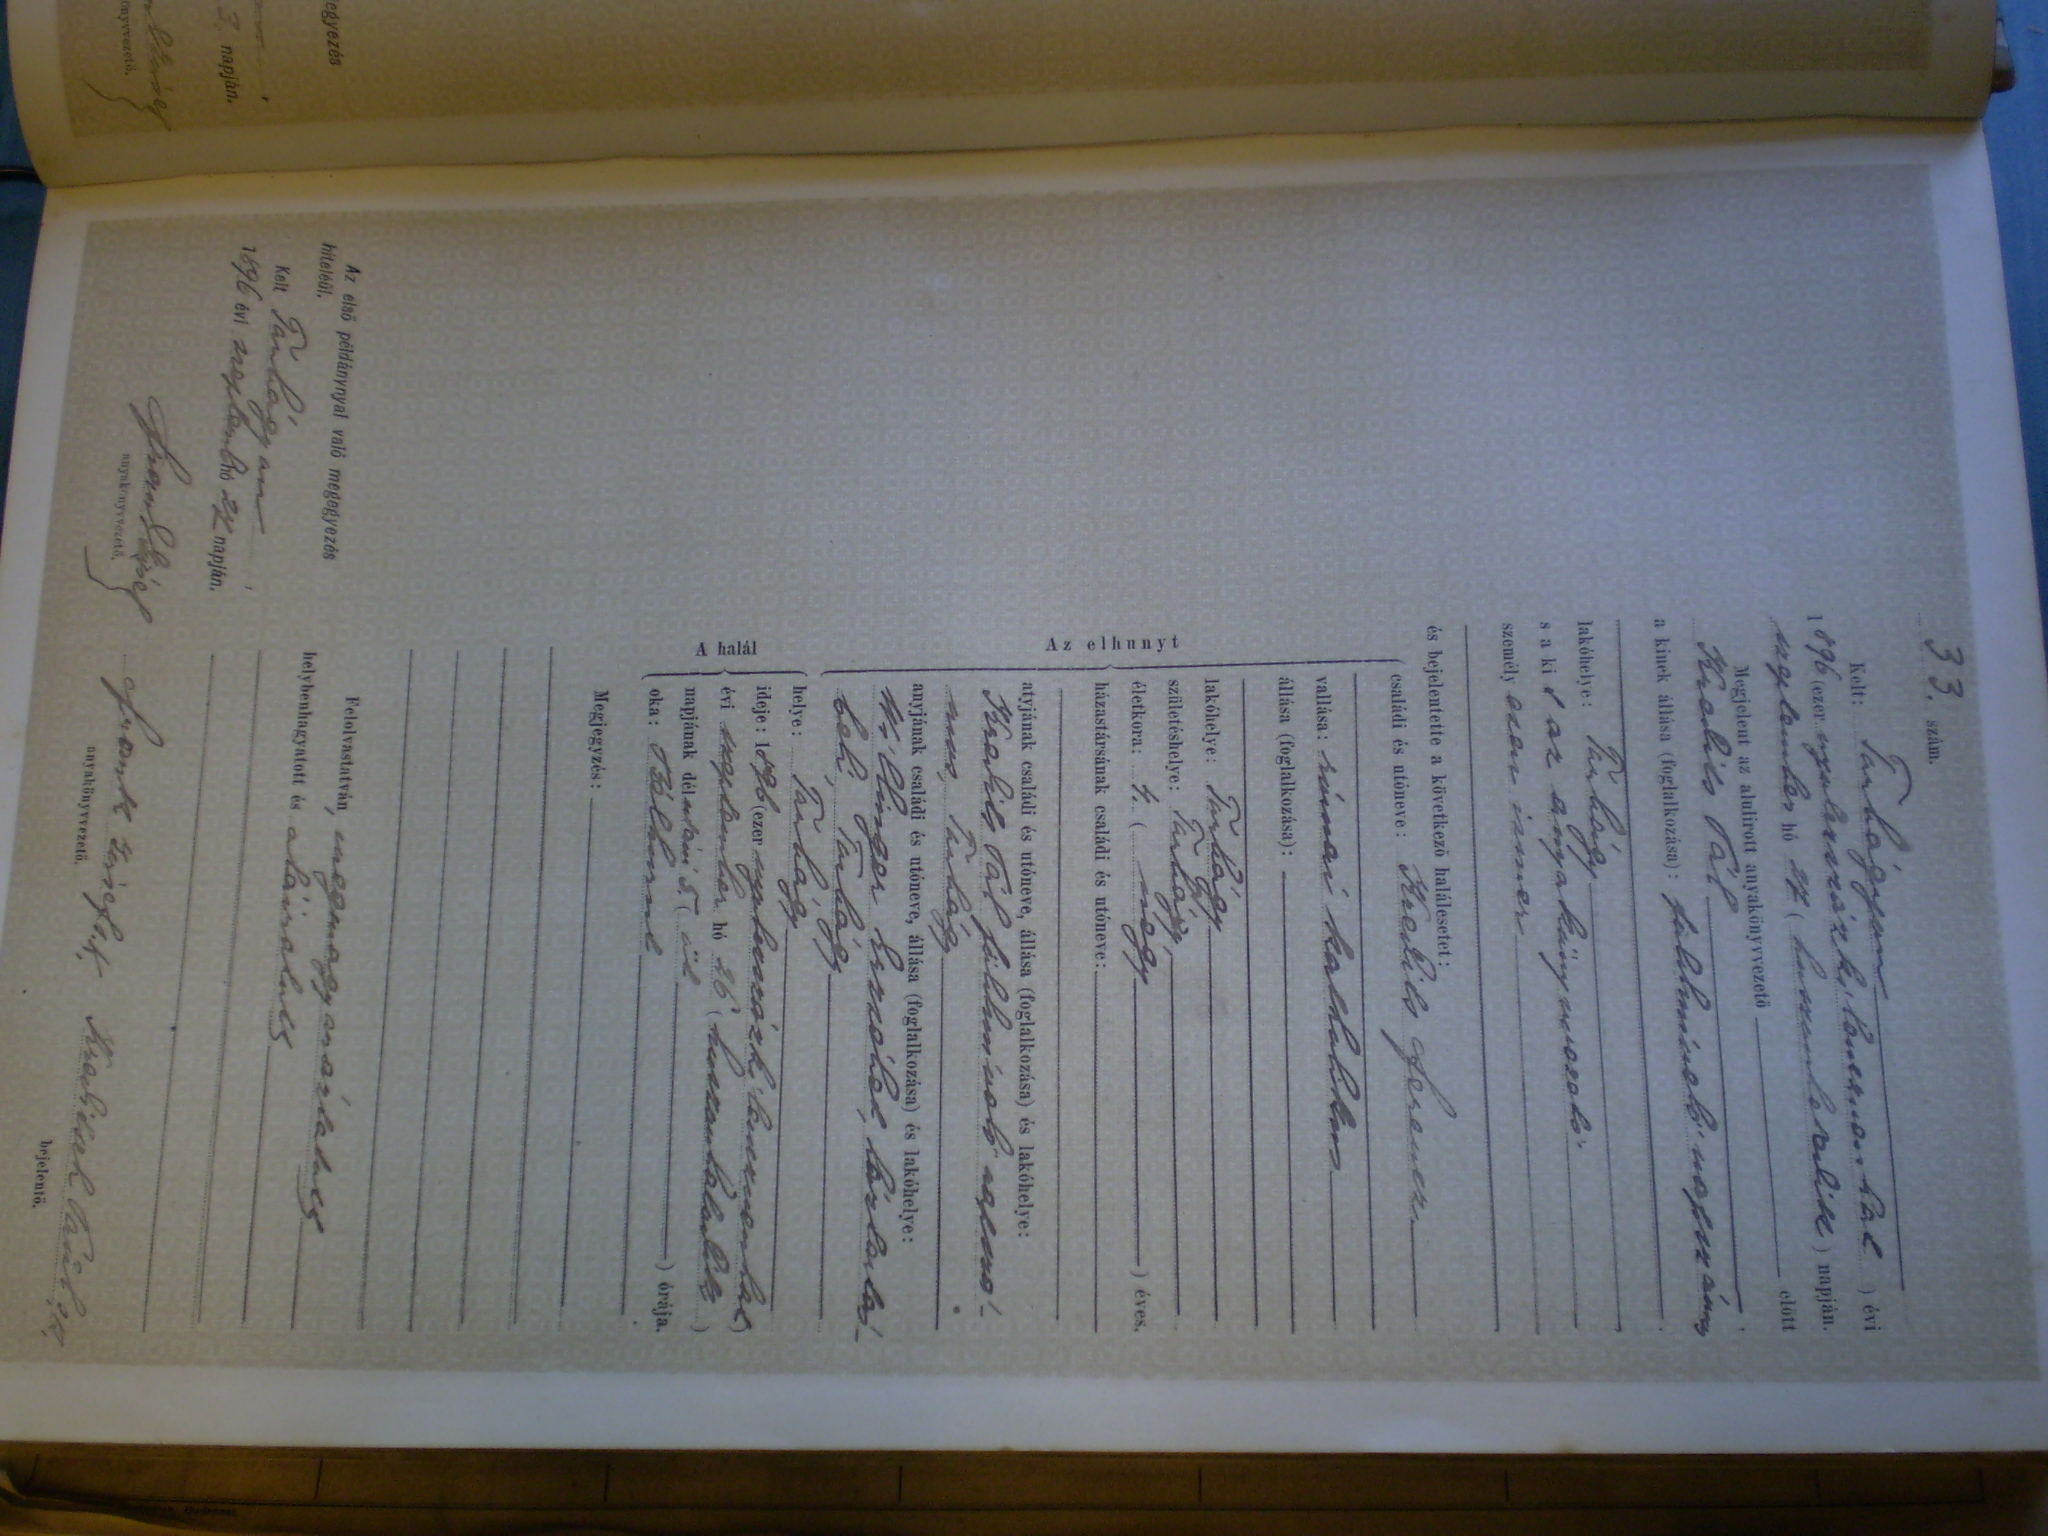 33. szám.
Kelt: Tarhágyon
1896 (ezer nyolcszázkilencvenhat) évi
szeptember hó 27. (huszonhetedik) napján.
Megjelent az alulirott anyakönyvvezető előtt
Krabils Pál
a kinek állása (foglalkozása): földmívelő napszámos
lakóhelye: Tarhágy
s a ki az anyakönyvvezető
személyesen ismer
és bejelentette a következő halálesetet:
Az elhunyt
családi és utóneve: Krabils Ferencz
vallása: római katholikus
állása (foglalkozása):
lakóhelye: Tarhágy
születéshelye: Tarhágy
életkora: 4. (négy) éves.
házastársának családi és utóneve:
atyjának családi és utóneve, állása (foglalkozása) és lakóhelye:
Krabils Pál földmívelő napszá-
mos, Tarhágy
anyjának családi és utóneve, állása (foglalkozása) és lakóhelye:
Killinger Erzsébet, háztartás-
beli, Tarhágy
A halál
helye: Tarhágy
ideje: 1896 (ezer nyolcszázkilencvenhat)
évi szeptember hó 26 (huszonhatodik)
napjának délutáni 5. (öt) órája.
oka:
Megjegyzés:
Felolvastatván, megmagyaráztatott
helybenhagyatott és aláíratott
Frank József s.k.
anyakönyvvezető.
Pál s.k.
bejelentő.
Az első példánynyal való megegyezés
hiteléül.
Kelt Tarhágyon
1896 évi szeptember hó 27 napján.
Frank József
anyakönyvvezető.
egyezés
3. napján.
önyvvezető.